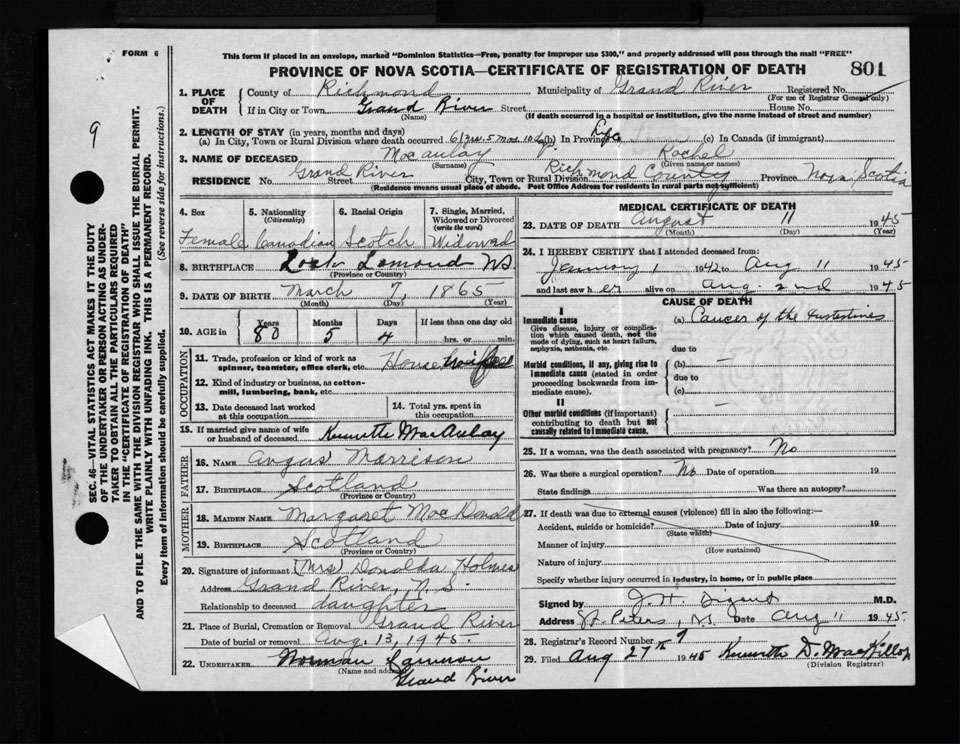 FORM 6
This form if placed in an envelope, marked "Dominion Statistics—Free, penalty for improper use $300," and properly addressed will pass through the mail "FREE"
PROVINCE OF NOVA SCOTIA—CERTIFICATE OF REGISTRATION OF DEATH 801
1. PLACE OF DEATH
County of Richmond Municipality of Grand River Registered No.
(For use of Registrar General only)
If in City or Town Grand River Street House No.
(Name) (If death occurred in a hospital or institution, give the name instead of street and number)
2. LENGTH OF STAY (in years, months and days)
(a) In City, Town or Rural Division where death occurred (b) In Province Life (c) In Canada (if immigrant)
3. NAME OF DECEASED MacAulay Rachel
(Surname) (Given name or names)
RESIDENCE No. Grand River Street City, Town or Rural Division Richmond County Province Nova Scotia
(Residence means usual place of abode. Post Office Address for residents in rural parts not sufficient)
4. Sex
Female
5. Nationality
(Citizenship)
Canadian
6. Racial Origin
Scotch
7. Single, Married, Widowed or Divorced
(write the word)
Widowed
8. BIRTHPLACE Loch Lomond NS
(Province or Country)
9. DATE OF BIRTH March 7, 1865
(Month) (Day) (Year)
10. AGE in Years Months Days If less than one day old
80 5 4 hrs. or min.
OCCUPATION
11. Trade, profession or kind of work as spinner, teamster, office clerk, etc. Housewife
12. Kind of industry or business, as cotton-mill, lumbering, bank, etc.
13. Date deceased last worked at this occupation
14. Total yrs. spent in this occupation
15. If married give name of wife or husband of deceased Kenneth MacAulay
FATHER
16. NAME Angus Morrison
17. BIRTHPLACE Scotland
(Province or Country)
MOTHER
18. MAIDEN NAME Margaret MacDonald
19. BIRTHPLACE Scotland
(Province or Country)
20. Signature of informant (Mrs) Donalda Holmes
Address Grand River, N.S.
Relationship to deceased daughter
21. Place of Burial, Cremation or Removal Grand River
Date of burial or removal Aug. 13, 1945.
22. UNDERTAKER Norman Cameron
(Name and address)
Grand River
MEDICAL CERTIFICATE OF DEATH
23. DATE OF DEATH August 11 1945
(Month) (Day) (Year)
24. I HEREBY CERTIFY that I attended deceased from:
January 1 1942 to Aug 11 1945
and last saw her alive on Aug. 2nd 1945
CAUSE OF DEATH
I
Immediate cause (a) Cancer of the Intestines
Give disease, injury or complication which caused death, not the mode of dying, such as heart failure, asphyxia, asthenia, etc.
due to
Morbid conditions, if any, giving rise to immediate cause (stated in order proceeding backwards from immediate cause).
(b) —
due to
(c)
II
Other morbid conditions (if important) contributing to death but not causally related to immediate cause. —
25. If a woman, was the death associated with pregnancy? No
26. Was there a surgical operation? No Date of operation 19
State findings Was there an autopsy?
27. If death was due to external causes (violence) fill in also the following:—
Accident, suicide or homicide? Date of injury 19
(State which)
Manner of injury
(How sustained)
Nature of injury
Specify whether injury occurred in industry, in home, or in public place
Signed by M.D.
Address St. Peters, N.S. Date Aug 11 1945.
28. Registrar's Record Number 9
29. Filed Aug 27th 1945 Kenneth D. MacKillop
(Division Registrar)
9
SEC. 46—VITAL STATISTICS ACT MAKES IT THE DUTY OF THE UNDERTAKER OR PERSON ACTING AS UNDERTAKER TO OBTAIN ALL THE PARTICULARS REQUIRED IN THE "CERTIFICATE OF REGISTRATION OF DEATH"
AND TO FILE THE SAME WITH THE DIVISION REGISTRAR WHO SHALL ISSUE THE BURIAL PERMIT.
WRITE PLAINLY WITH UNFADING INK. THIS IS A PERMANENT RECORD.
Every item of information should be carefully supplied. (See reverse side for instructions.)